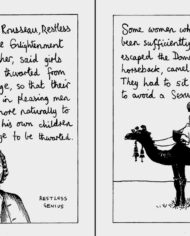 Rousseau, Restless
Enlightenment
her, said girls
thwarted from
ge, so that their
in pleasing men
more naturally to
his own children
ge to be thwarted.
RESTLESS
GENIUS
Some women wh
been sufficiently
escaped the Dom
horseback, camel
They had to sit
to avoid a Sexu